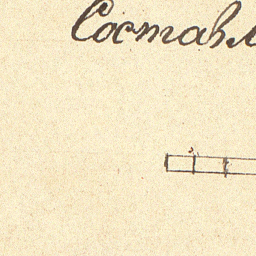 Составл